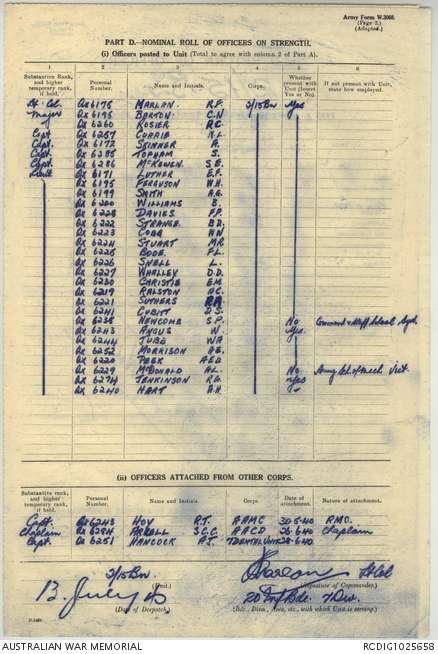 Army Form W.3008.
(Page 3.)
(Adapted.)
PART D.—NOMINAL ROLL OF OFFICERS ON STRENGTH.
(i) Officers posted to Unit (Total to agree with column 2 of Part A).
1 2 3 4 5 6
Substantive Rank, and higher temporary rank, if held. Personal Number. Name and Initials. Corps. Whether present with Unit (Insert Yes or No). If not present with Unit, state how employed.
Lt. Col. Qx6196 MARLAN. R.F. 2/15Bn Yes
Major Qx6195 BARTON. C.N
Qx6260 ROSIER R.C.
Capt Qx6257 CURRIE R.L.
Capt. Qx6172 SKINNER A.
Capt. Qx6285 TOPHAM S.
Capt. Qx6286 McKEWEN S.E.
Lieut Qx6171 LUTHER E.F.
Qx6195 FERGUSON W.H.
Qx6199 SMITH A.G.
Qx6200 WILLIAMS E.
Qx6228 DAVIES F.P.
Qx6222 STRANGE B.D.
Qx6223 COBB WN
Qx6224 STUART M.R.
Qx6225 BODE FL.
Qx6226 SNELL L.
Qx6227 WHALLEY D.D.
Qx6230 CHRISTIE E.M.
Qx6219 RALSTON A.C.
Qx6221 SUTHERS
Qx6241 CUBITT D.S.
Qx6238 NEWCOMB S.P. No Command & Staff School Syd.
Qx6243 ANGUS W. Yes.
Qx6244 JUBB WA
Qx6252 MORRISON A.E.
Qx6220 PECK
Qx6229 McDONALD A.L. No Army Sch. of Mech Vict.
Qx6274 JENKINSON R.G. Yes
Qx6240 HART A.H.
(ii) OFFICERS ATTACHED FROM OTHER CORPS.
Substantive rank, and higher temporary rank, if held. Personal Number. Name and Initials. Corps. Date of attachment. Nature of attachment.
Capt. Qx6243 HOY R.T. AAMC 30.5.40 R.M.O.
Chaplain Qx6294 S.C.C. AACD 6.40 Chaplain
Capt. Qx6251 HANCOCK A.J. DENTAL UNIT 6.40
2/15Bn (Unit.) Lt Col (Signature of Commander.)
13. July 40 20 Inf Bde. 7 Div.
(Date of Despatch.) (Bde., Divn., Area, etc., with which Unit is serving.)
AUSTRALIAN WAR MEMORIAL RCDIG1025658